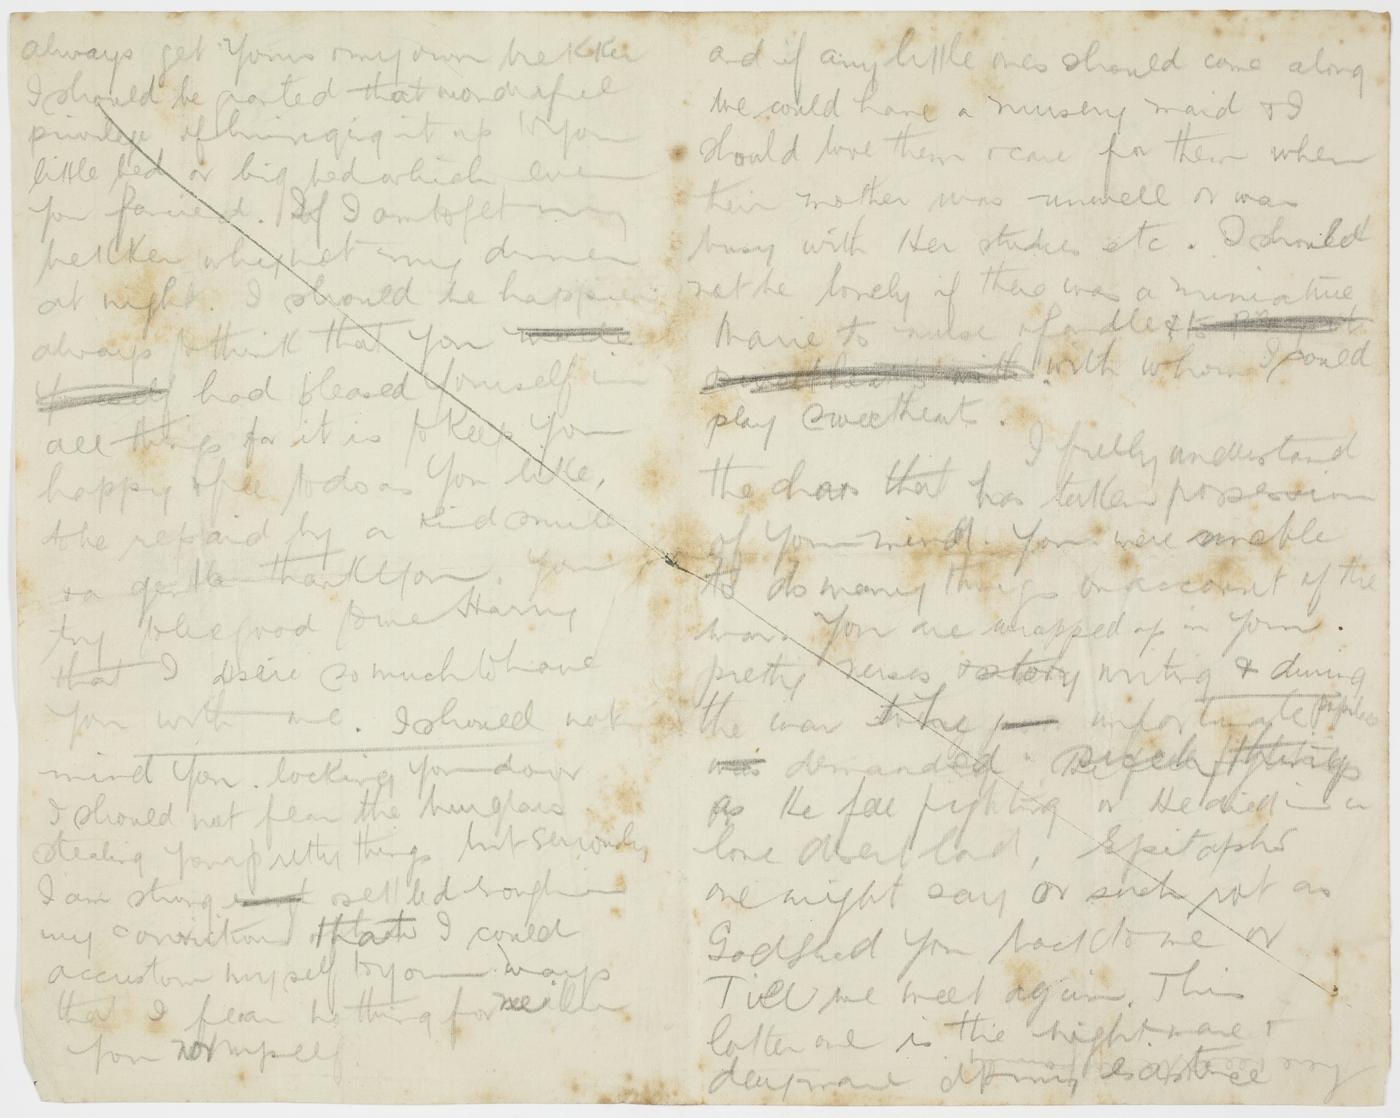 always get yours & my own brekker
I should be granted that wonderful
privilege of bringing it up to your
little bed or big bed which ever
you fancied. If I am to get my
brekker why not my dinner
at night. I should be happier
always to think that you
had pleased yourself in
all things for it is to keep you
happy & free to do as you like,
to be repaid by a kind smile
or a gentle thank you. You
try to be good to me Harry
that I desire so much to have
you with me. I should not
mind you locking your door
I should not fear the burglars
stealing your pretty things but seriously
I am strong & settled enough in
my conviction that I could
accustom myself to your ways
that I fear nothing for neither
you nor myself
and if any little ones should come along
we could have a nursery maid & I
should love them & care for them when
their mother was unwell or was
busy with Her studies etc. I should
not be lonely if there was a miniature
Marie to nurse & fondle &
with whom I could
play sweetheart.
I fully understand
the chaos that has taken possession
of your mind. You were unable
to do many things on account of the
war. You are wrapped up in your
pretty verses & story writing & during
the war unfortunately
demanded such things
as He fell fighting or He died in a
lone desert land, Epitaphs
one might say or such rot as
God Send You back to me or
Till we meet again. This
latter one is the nightmare &
daymare of my existence